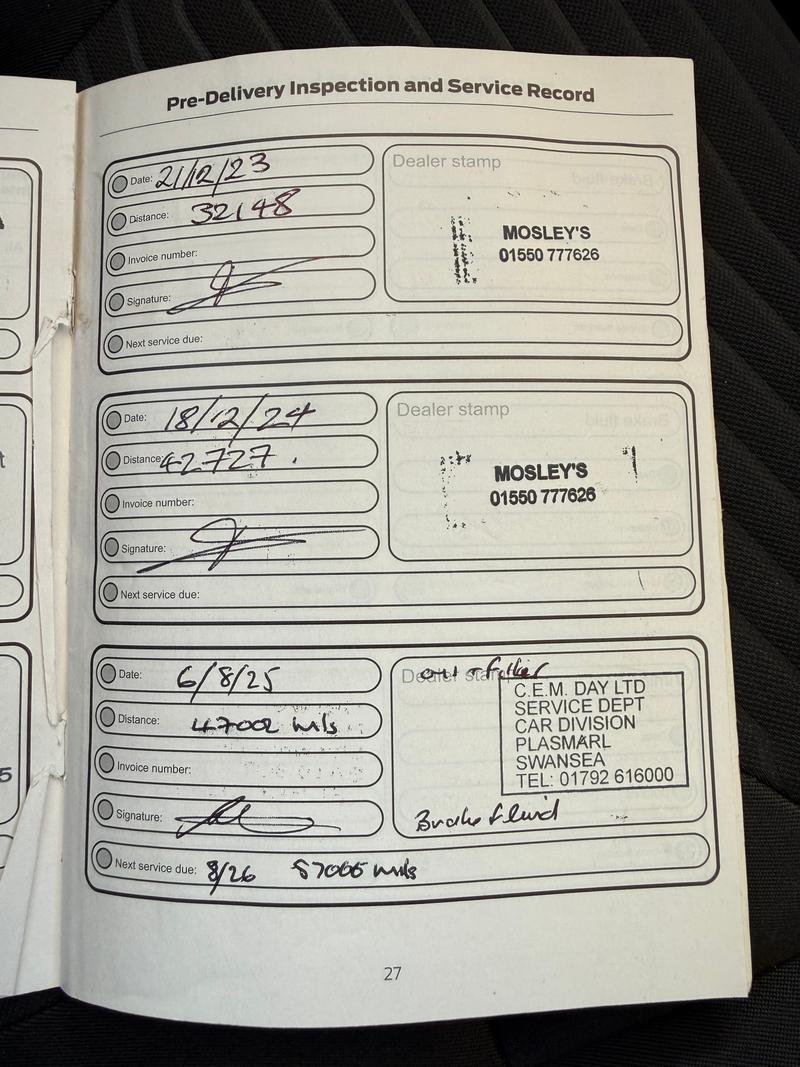 Pre-Delivery Inspection and Service Record
Date: 21/12/23
Distance: 32148
Invoice number:
Signature:
Next service due:
Dealer stamp
MOSLEY'S
01550 777626
Date: 18/12/24
Distance: 42727
Invoice number:
Signature:
Next service due:
Dealer stamp
MOSLEY'S
01550 777626
Date: 6/8/25
Distance: 47002 mls
Invoice number:
Signature:
Next service due: 8/26
Dealer stamp
C.E.M. DAY LTD
SERVICE DEPT
CAR DIVISION
PLASMARL
SWANSEA
TEL: 01792 616000
Brake fluid
27